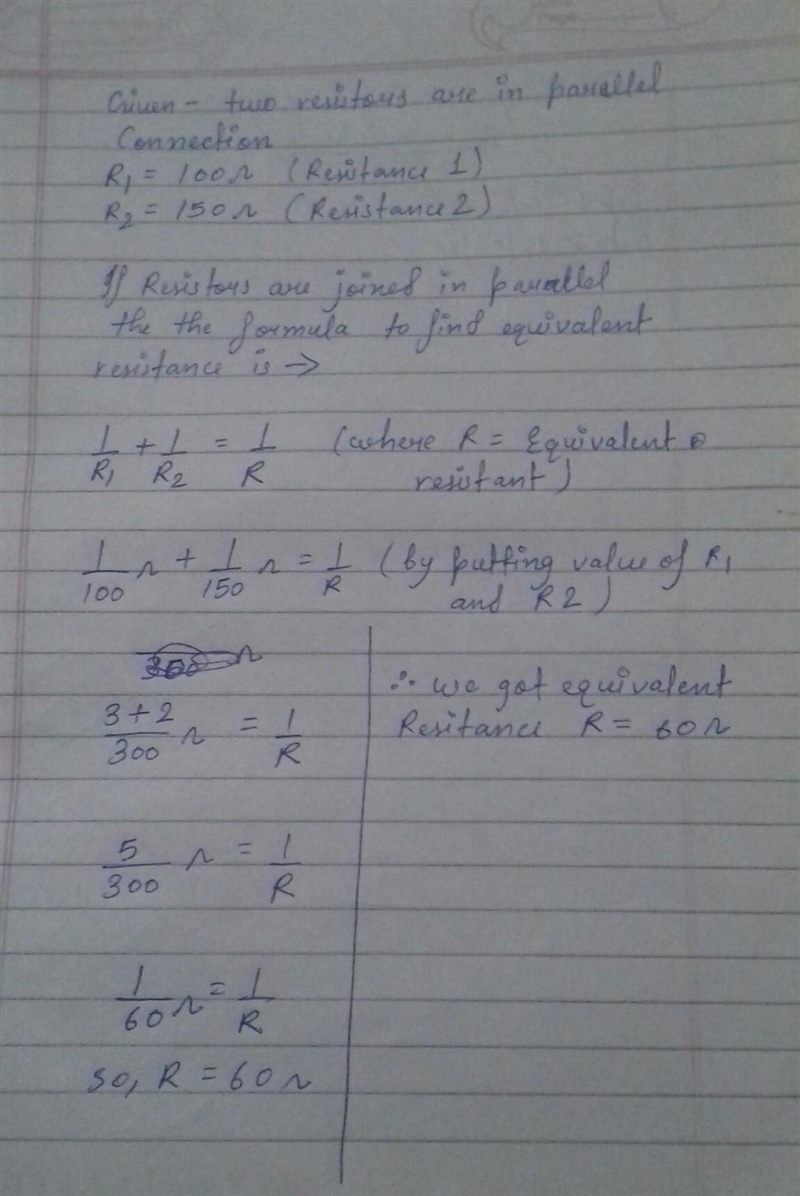 Given - two resistors are in parallel
Connection
R1 = 100Ω (Resistance 1)
R2 = 150Ω (Resistance 2)
If Resistors are joined in parallel
the the formula to find equivalent
resistance is →
1/R1 + 1/R2 = 1/R (where R = Equivalent
resistant)
1/100 Ω + 1/150 Ω = 1/R (by putting value of R1
and R2)
(3+2)/300 Ω = 1/R
5/300 Ω = 1/R
1/60 Ω = 1/R
so, R = 60Ω
∴ we got equivalent
Resitance R = 60Ω